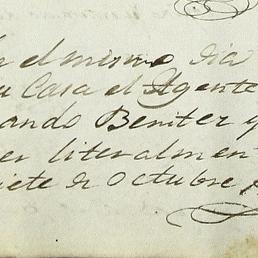 el mismo dia
Casa el Agente
ando Beniter y
er literalment
iete de Octubre